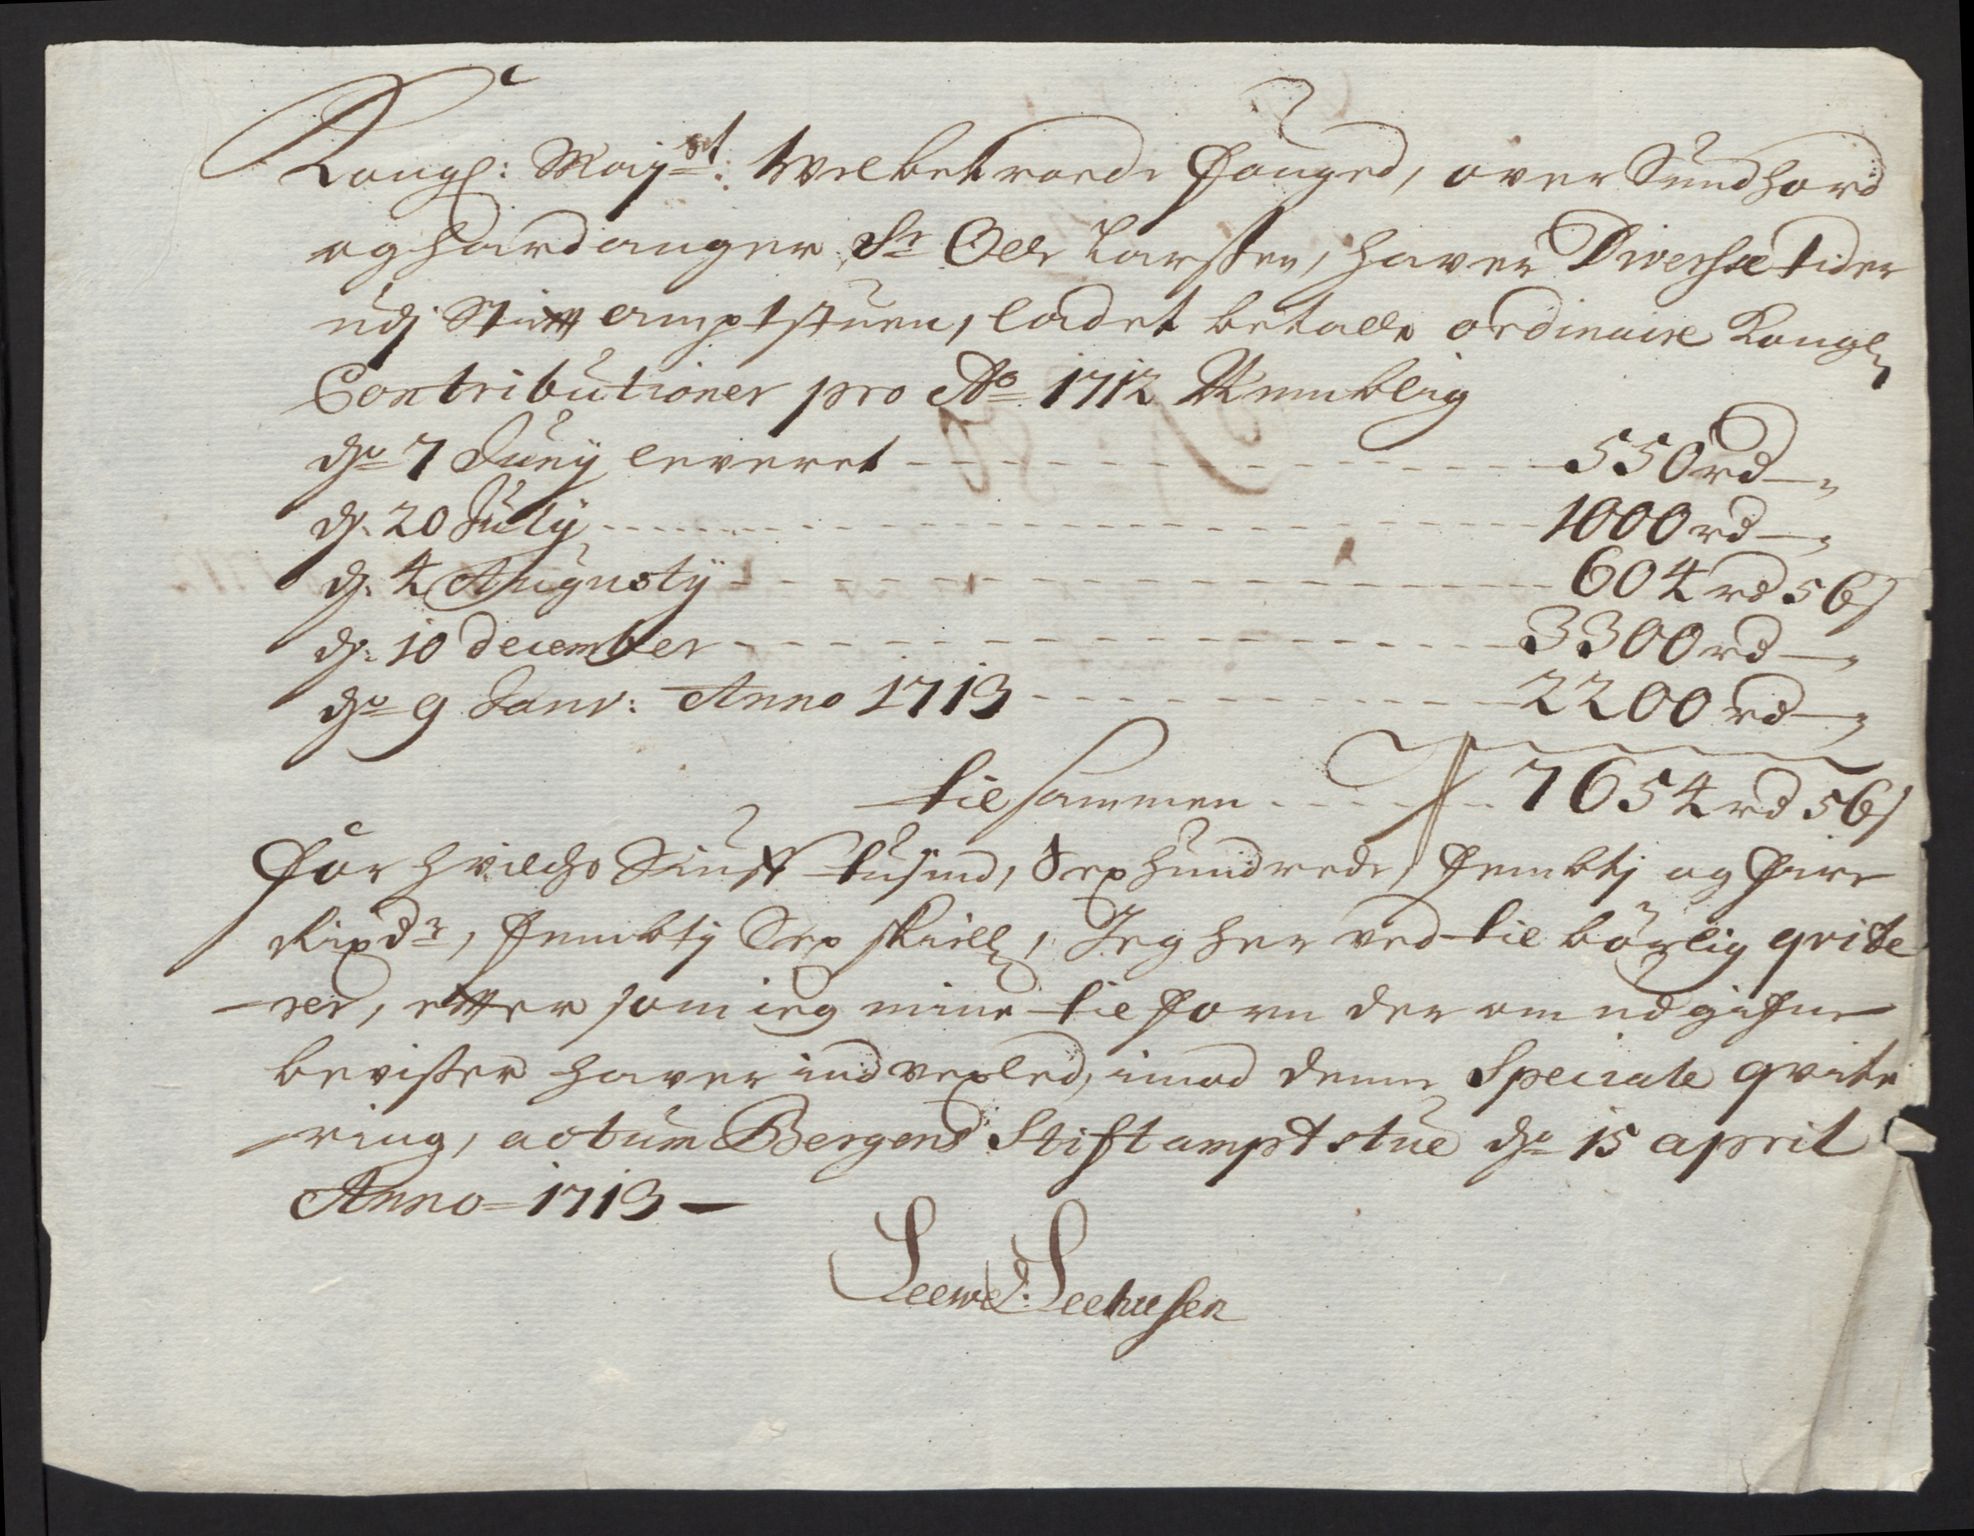 Kongl: Mayst: Welbetroede Fouged, over Sundhord
og Hardanger Sr Olle Larssen, haver Diverse tider
udj Stift amptstuen, ladet betalle ordinaire Kongl
Contributioner pro Ao 1712 Nemblig
do 7 Juny leveret - - - 550 rd — „
d. 20 July - - - 1000 rd — „
d. 4 Augusty - - - 604 rd 56 s
d. 10 december - - - 3300 rd — „
do 9 Janv: Anno 1713 - - - 2200 rd — „
tilsammen - - - 7654 rd 56 s
for hvilche Siuf tusind, Sex hundrede, fembtj og fire
Rixdr, fembtj Sex skill, Jeg her ved til børlig qvite
rer, etter som ieg mine til forn der om udgifne
bevisser haver ind vexled, imod denne Speciale qvite
ring, actum Bergens Stiftamptstue do 15 april
Anno 1713 —
Seehusen